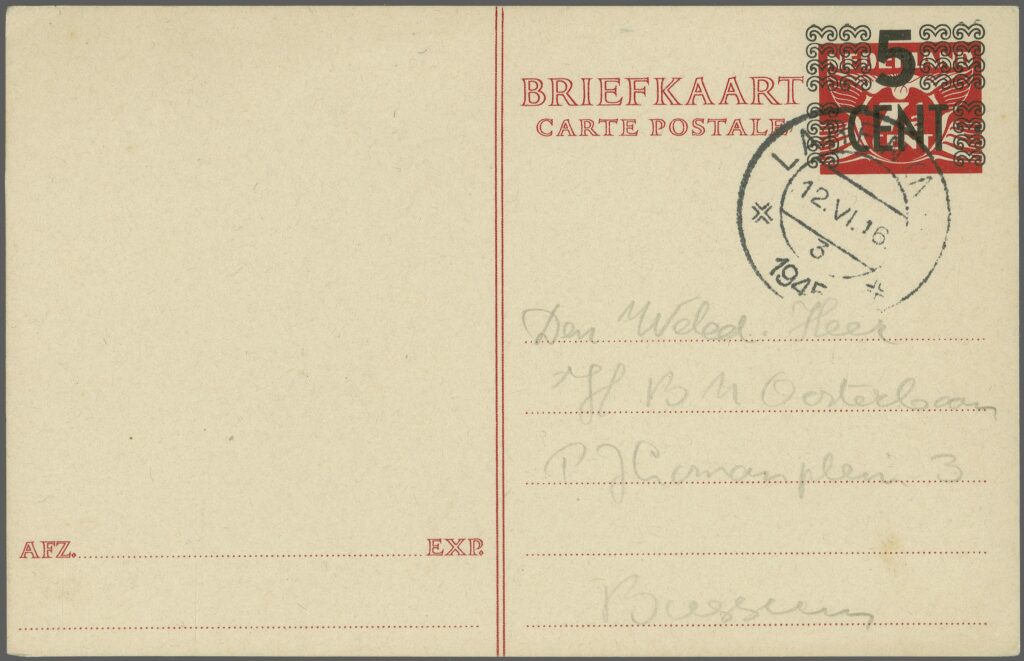 5
NEDERLAND
BRIEFKAART
CENT
CARTE POSTALE
12.VI.16
3
1945
Den Weled. Heer
B M Oosterbaan
3
AFZ. EXP.
Bussum